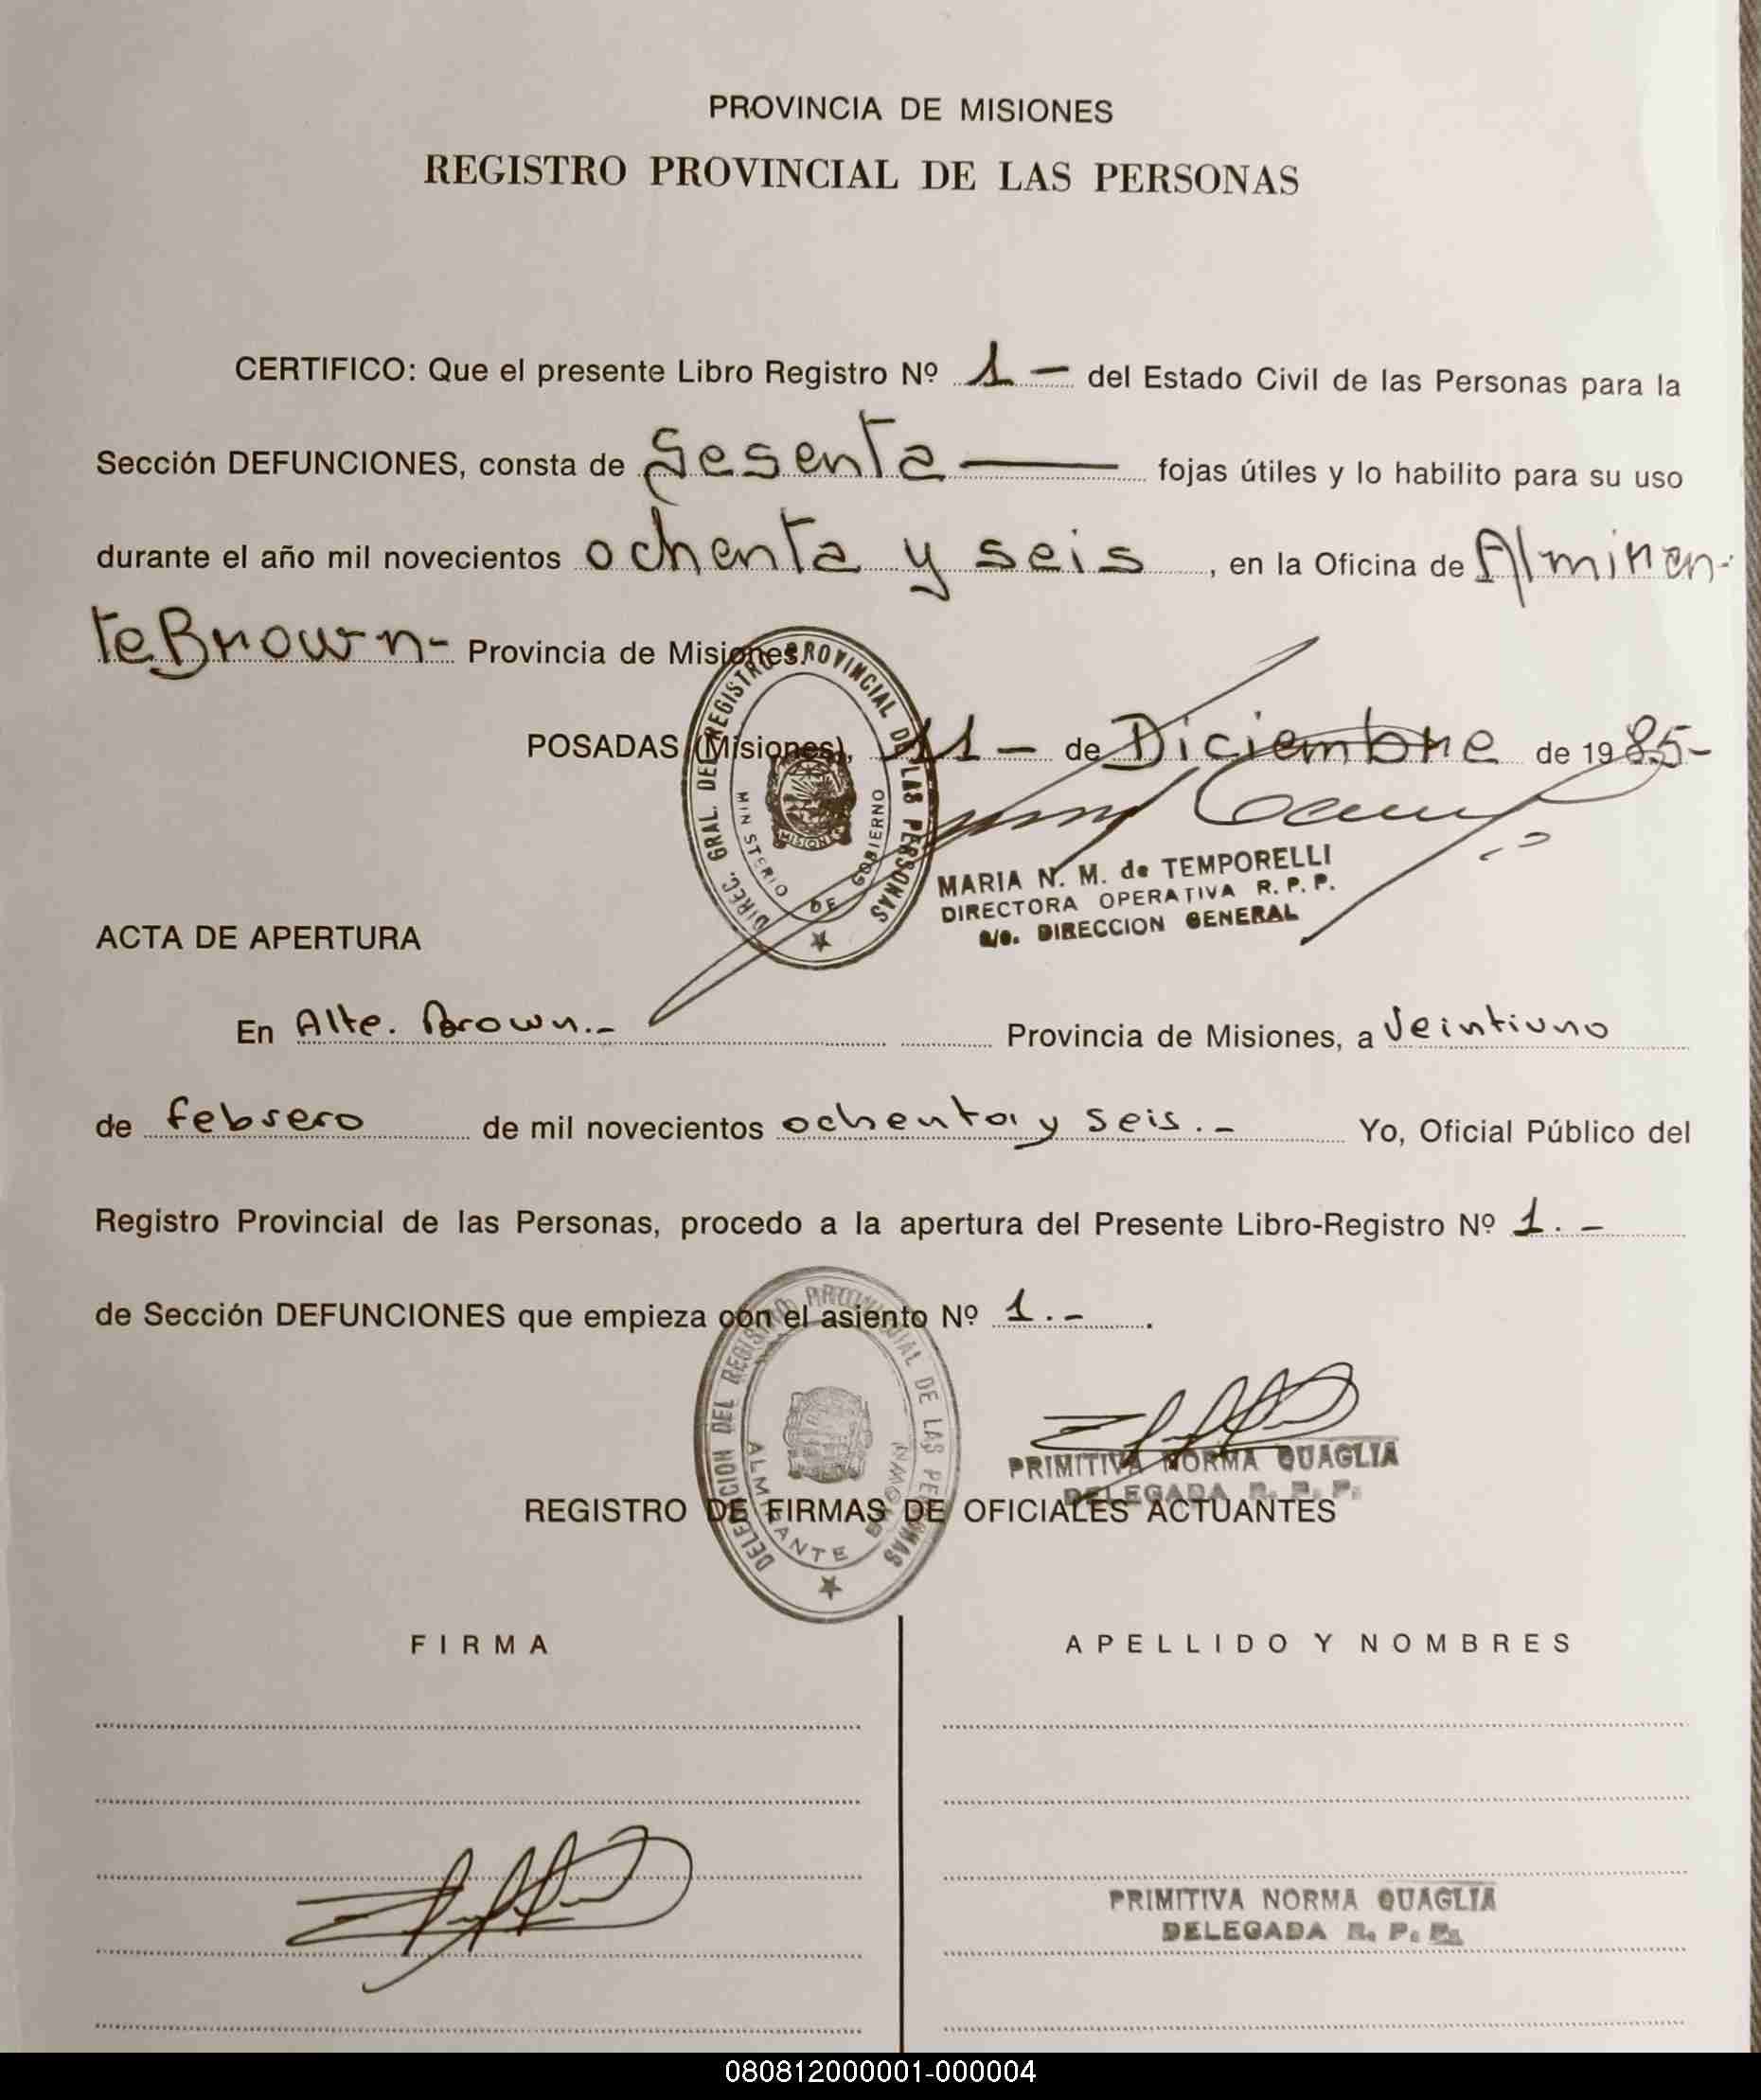 PROVINCIA DE MISIONES
REGISTRO PROVINCIAL DE LAS PERSONAS
CERTIFICO: Que el presente Libro Registro Nº 1 — del Estado Civil de las Personas para la
Sección DEFUNCIONES, consta de Sesenta — fojas útiles y lo habilito para su uso
durante el año mil novecientos ochenta y seis, en la Oficina de Almiran-
te Brown- Provincia de Misiones.
POSADAS (Misiones), 11 — de Diciembre de 1985-
DIREC. GRAL. DEL REGISTRO PROVINCIAL DE LAS PERSONAS
MINISTERIO DE GOBIERNO
MISIONES
MARIA N. M. de TEMPORELLI
DIRECTORA OPERATIVA R. P. P.
a/c. DIRECCION GENERAL
ACTA DE APERTURA
En Alte. Brown.- Provincia de Misiones, a Veintiuno
de febrero de mil novecientos ochenta y seis.- Yo, Oficial Público del
Registro Provincial de las Personas, procedo a la apertura del Presente Libro-Registro Nº 1.-
de Sección DEFUNCIONES que empieza con el asiento Nº 1.-.
DELEGACION DEL REGISTRO PROVINCIAL DE LAS PERSONAS
ALMIRANTE BROWN
PRIMITIVA NORMA QUAGLIA
DELEGADA R. P. P.
REGISTRO DE FIRMAS DE OFICIALES ACTUANTES
FIRMA APELLIDO Y NOMBRES
PRIMITIVA NORMA QUAGLIA
DELEGADA R. P. P.
080812000001-000004